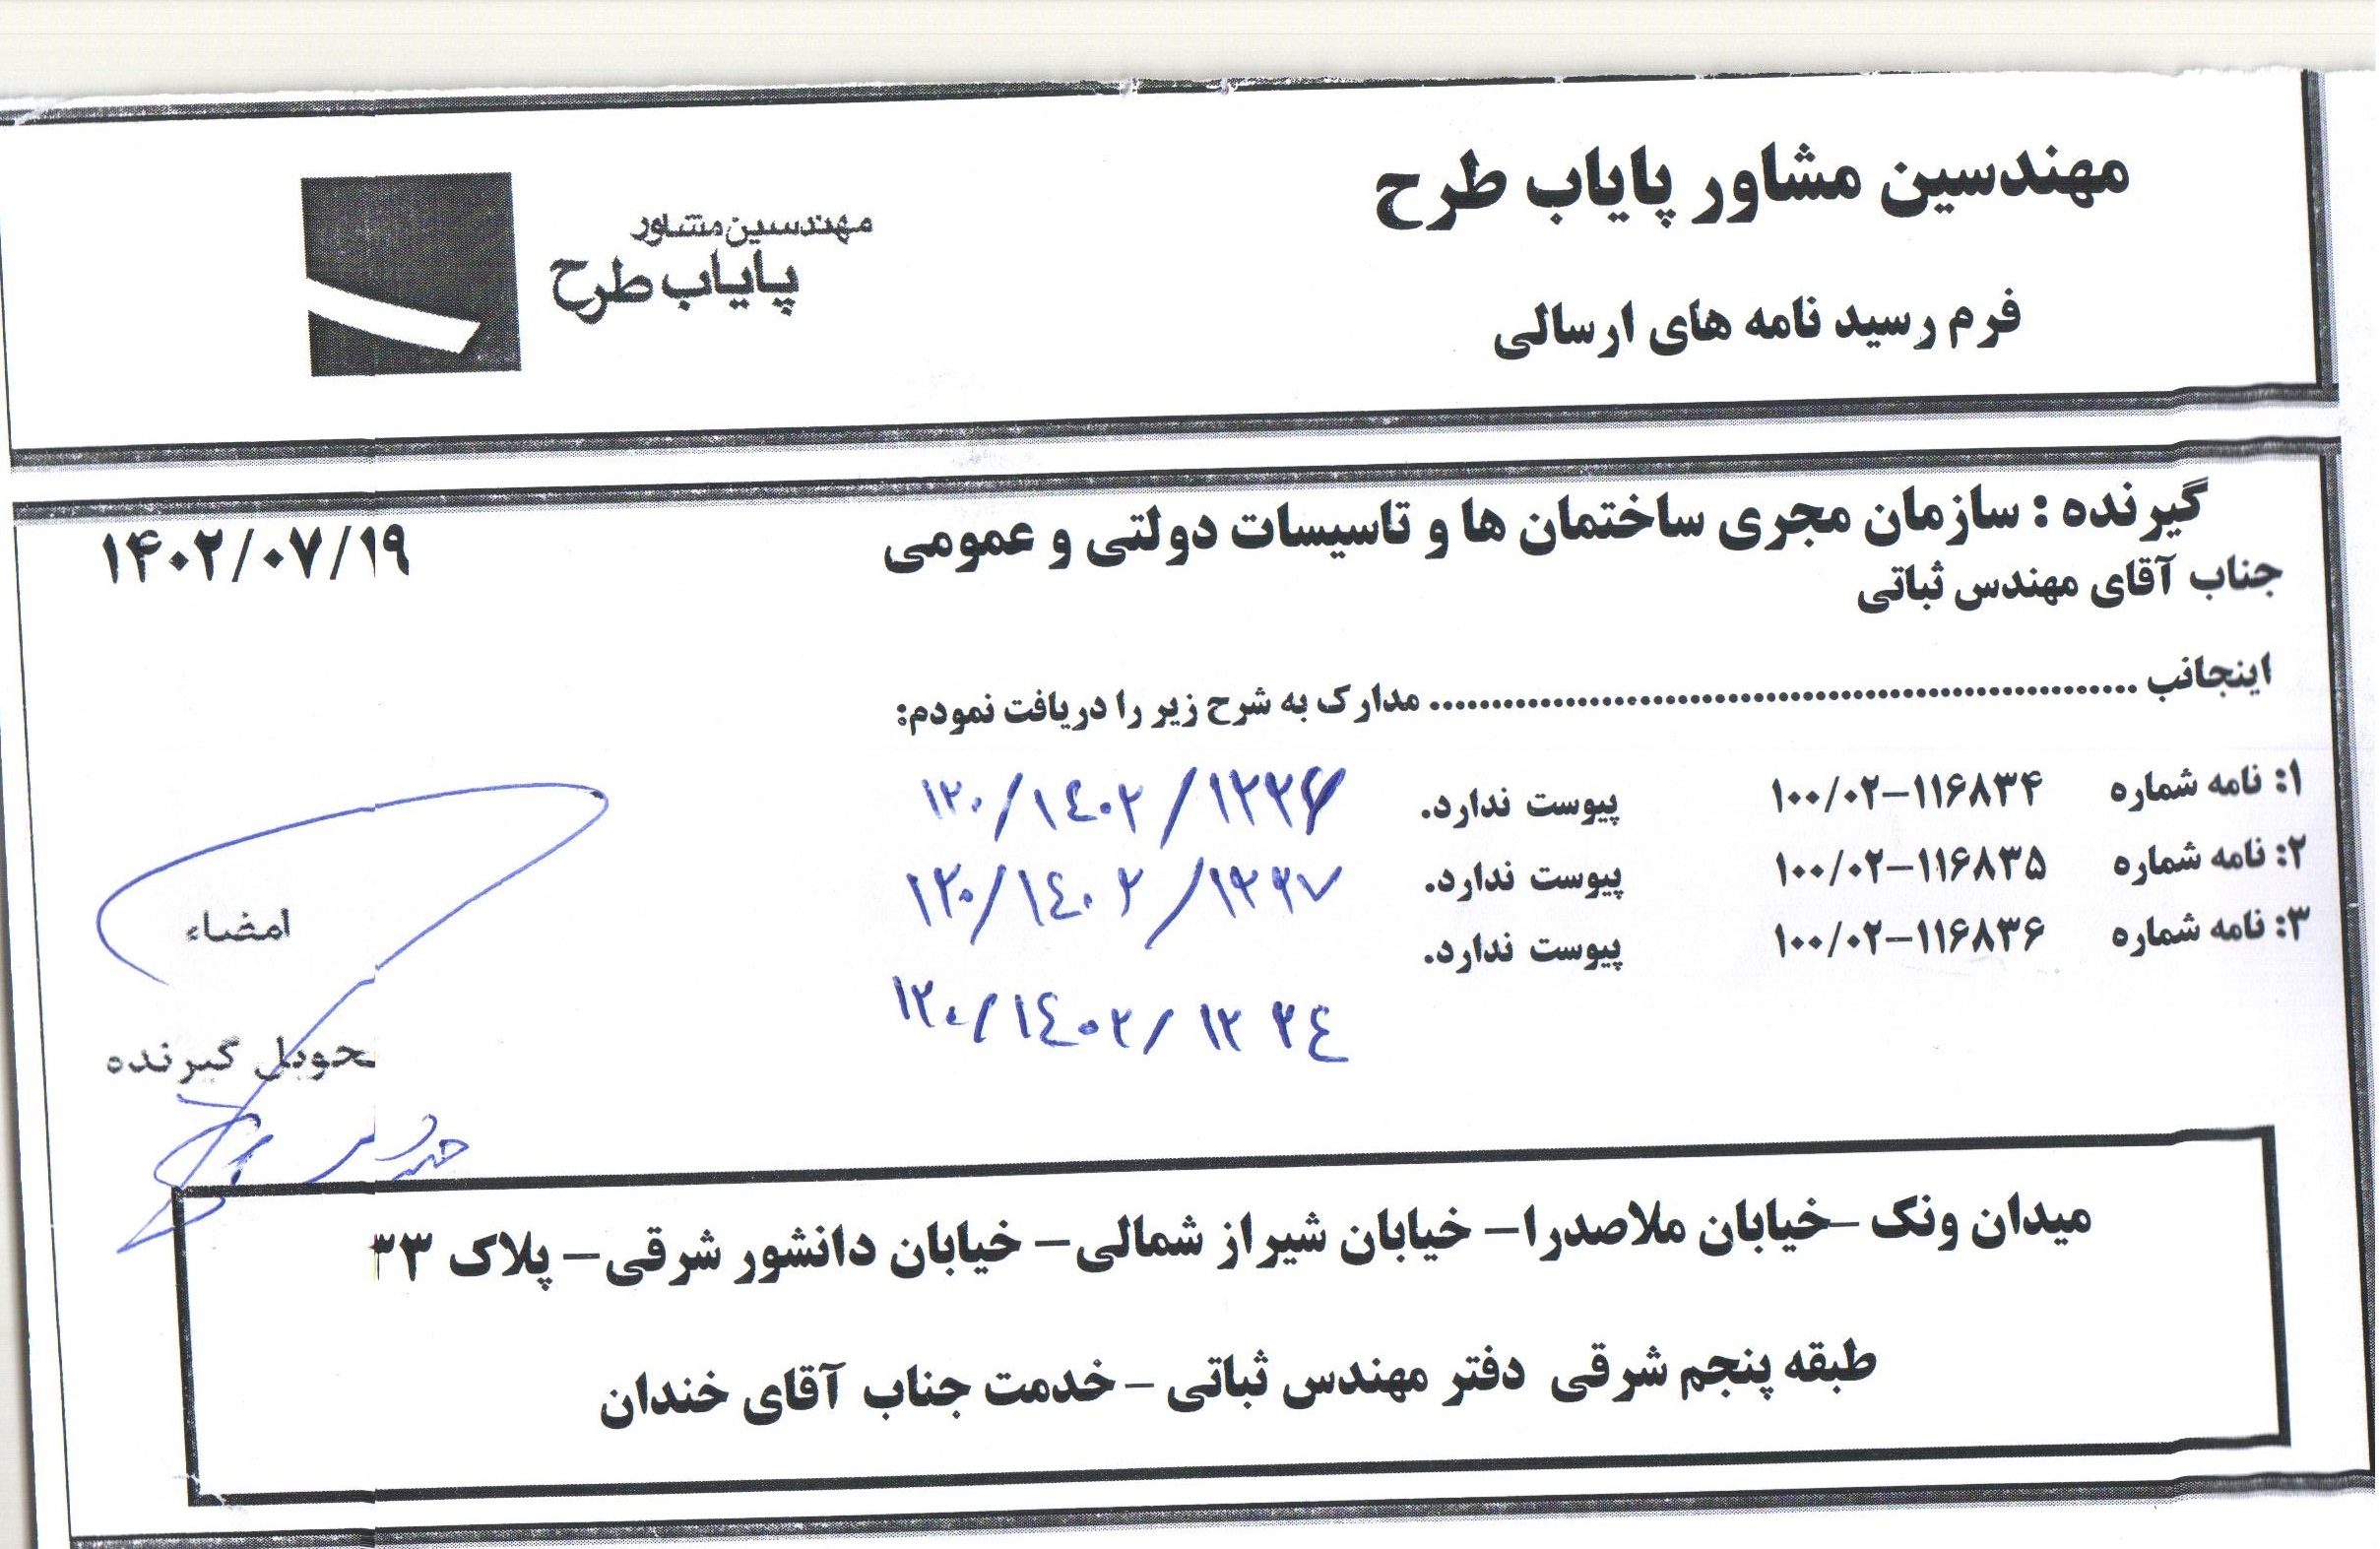 مهندسین مشاور پایاب طرح
مهندسین مشاور
پایاب طرح
فرم رسید نامه های ارسالی
گیرنده : سازمان مجری ساختمان ها و تاسیسات دولتی و عمومی
۱۴۰۲/۰۷/۱۹
جناب آقای مهندس ثباتی
اینجانب ........................................................ مدارک به شرح زیر را دریافت نمودم:
۱: نامه شماره ۱۰۰/۰۲-۱۱۶۸۳۴ پیوست ندارد. ۱۲۰/۱۴۰۲/۱۲۳۶
۲: نامه شماره ۱۰۰/۰۲-۱۱۶۸۳۵ پیوست ندارد. ۱۲۰/۱۴۰۲/۱۲۳۷
۳: نامه شماره ۱۰۰/۰۲-۱۱۶۸۳۶ پیوست ندارد.
۱۲۰/۱۴۰۲/۱۲۳۴
امضاء
تحویل گیرنده
میدان ونک –خیابان ملاصدرا– خیابان شیراز شمالی– خیابان دانشور شرقی– پلاک ۳۳
طبقه پنجم شرقی دفتر مهندس ثباتی – خدمت جناب آقای خندان